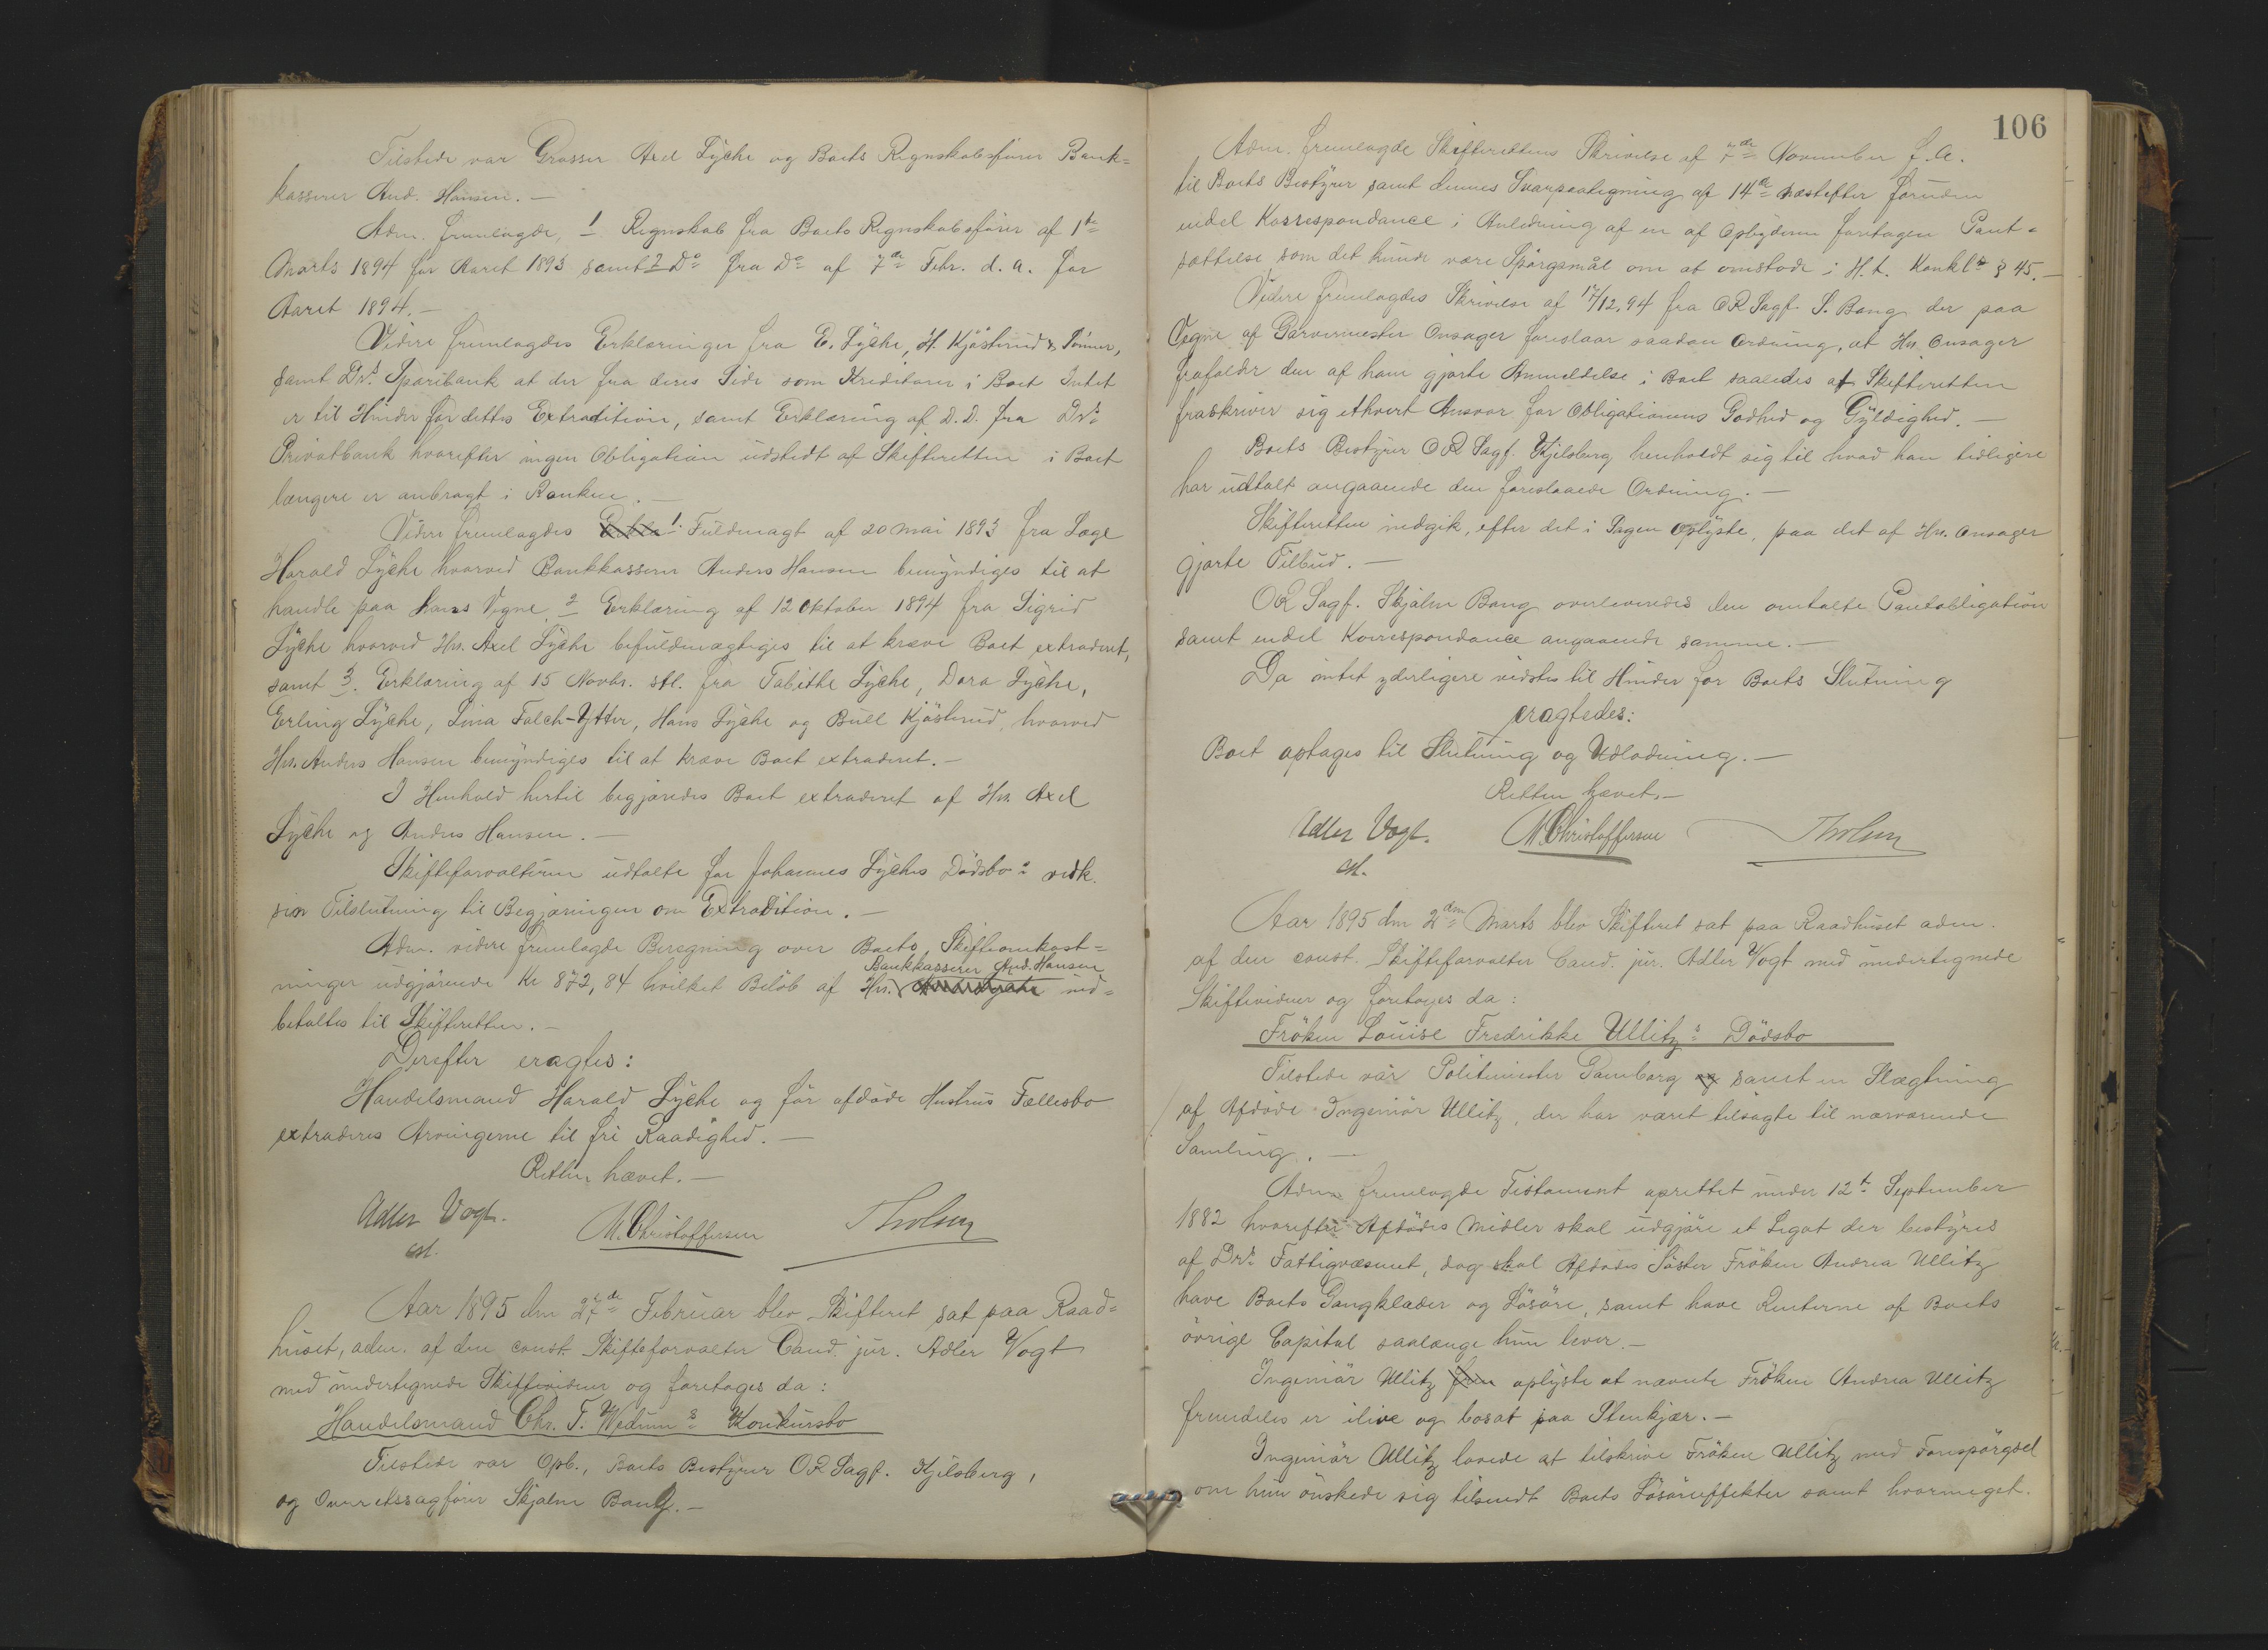 Tilstede var Grosser Axel Lÿche og Boets Regnskabsfører Bank-
kasserer And. Hansen. —
Adm. fremlagde, 1 Regnskab fra Boets Regnskabsfører af 1ste
Marts 1894 for Aaret 1893 samt 2 Do fra Do af 7de Febr. d. a. for
Aaret 1894. —
Videre fremlagdes Erklæringer fra E. Lÿche, H. Kjösterud & Sönner,
samt Drs. Sparebank at der fra deres Side som Kreditorer i Boet Intet
er til Hinder for dettes Extradition, samt Erklæring af D. D. fra Drs
Privatbank hvorefter ingen Obligation udstedt af Skifteretten i Boet
længere er anbragt i Banken. —
Videre fremlagdes 1. Fuldmagt af 20 Mai 1893 fra Læge
Harald Lÿche hvorved Bankkasserer Anders Hansen bemÿndiges til at
handle paa hans Vegne, 2 Erklæring af 12 Oktober 1894 fra Sigrid
Lÿche hvorved Hr. Axel Lÿche befuldmægtiges til at kræve Boet extraderet,
samt 3. Erklæring af 15 Novbr. stl. fra Tabithe Lÿche, Dora Lÿche,
Erling Lÿche, Lina Falch-Ytter, Hans Lÿche og Bull Kjösterud, hvorved
Hr. Anders Hansen bemÿndiges til at kræve Boet extraderet. —
I Henhold hertil begjæredes Boet extraderet af Hr. Axel
Lÿche og Anders Hansen. —
Skifteforvalteren udtalte for Johannes Lÿches Dödsbos vedk.
sin Tilslutning til Begjæringen om Extradition. —
Adm. videre fremlagde Beregning over Boets Skifteomkost-
Bankkasserer And. Hansen
ninger udgjörende Kr 872,84 hvilket Belöb af Hr. ind-
betaltes til Skifteretten. —
Derefter eragtes:
Handelsmand Harald Lÿche og för afdöde Hustrus Fællesbo
extraderes Arvingerne til fri Raadighed. —
Retten hævet. —
Adler Vogt. M. Christoffersen Tholsen
cst.
Aar 1895 den 27de Februar blev Skifteret sat paa Raad-
huset, adm. af den const. Skifteforvalter Cand. jur. Adler Vogt
med undertegnede Skiftevidner og foretoges da:
Handelsmand Chr. T. Wedums Konkursbo
Tilstede var Opb., Boets Bestÿrer OR Sagf. Kjelsberg,
og Overretssagförer Skjalm Bang. —
106
Adm. fremlagde Skifterettens Skrivelse af 7de November f. A.
til Boets Bestÿrer samt dennes Svarpaategning af 14de næstefter foruden
endel Korrespondance i Anledning af en af Opbÿderen foretagen Pant-
sættelse som det kunde være Spörgsmål om at omstöde i H. t. Konkls § 45. —
Videre fremlagdes Skrivelse af 17/12.94 fra OR Sagf. S. Bang der paa
Vegne af Garvermester Onsager foreslaar saadan Ordning, at Hr. Onsager
frafalder den af ham gjorte Anmeldelse i Boet saaledes at Skifteretten
fraskriver sig ethvert Ansvar for Obligationens Godhed og Gÿldighed. —
Boets Bestÿrer OR Sagf. Kjelsberg henholdt sig til hvad han tidligere
har udtalt angaaende den foreslaaede Ordning. —
Skifteretten indgik, efter det i Sagen oplÿste, paa det af Hr. Onsager
gjorte Tilbud. —
OR Sagf. Skjalm Bang overleveredes den omtalte Pantobligation
samt endel Korrespondance angaaende samme. —
Da intet yderligere vidstes til Hinder for Boets Slutning
eragtedes:
Boet optages til Slutning og Udlodning. —
Retten hævet. —
Adler Vogt. M. Christoffersen Tholsen
cst.
Aar 1895 den 2den Marts blev Skifteret sat paa Raadhuset adm.
af den const. Skifteforvalter Cand. jur. Adler Vogt med undertegnede
Skiftevidner og foretoges da:
Fröken Louise Fredrikke Ullitz's Dödsbo
Tilstede var Politimester Gamborg og samt en Slægtning
af Afdöde Ingeniör Ullitz, der har været tilsagte til nærværende
Samling. —
Adm. fremlagde Testament oprettet under 12te September
1882 hvorefter Afdödes Midler skal udgjöre et Legat der bestÿres
af Drs Fattigvæsenet, dog skal Afdödes Söster Fröken Andrea Ullitz
have Boets Gangklæder og Lösöre, samt have Renterne af Boets
övrige Capital saalænge hun lever. —
Ingeniör Ullitz oplÿste at nævnte Fröken Andrea Ullitz
fremdeles er ilive og bosat paa Stenkjær. —
Ingeniör Ullitz lovede at tilskrive Fröken Ullitz med Forespörgsel
om hun önskede sig tilsendt Boets Lösöreeffekter samt hvormeget.